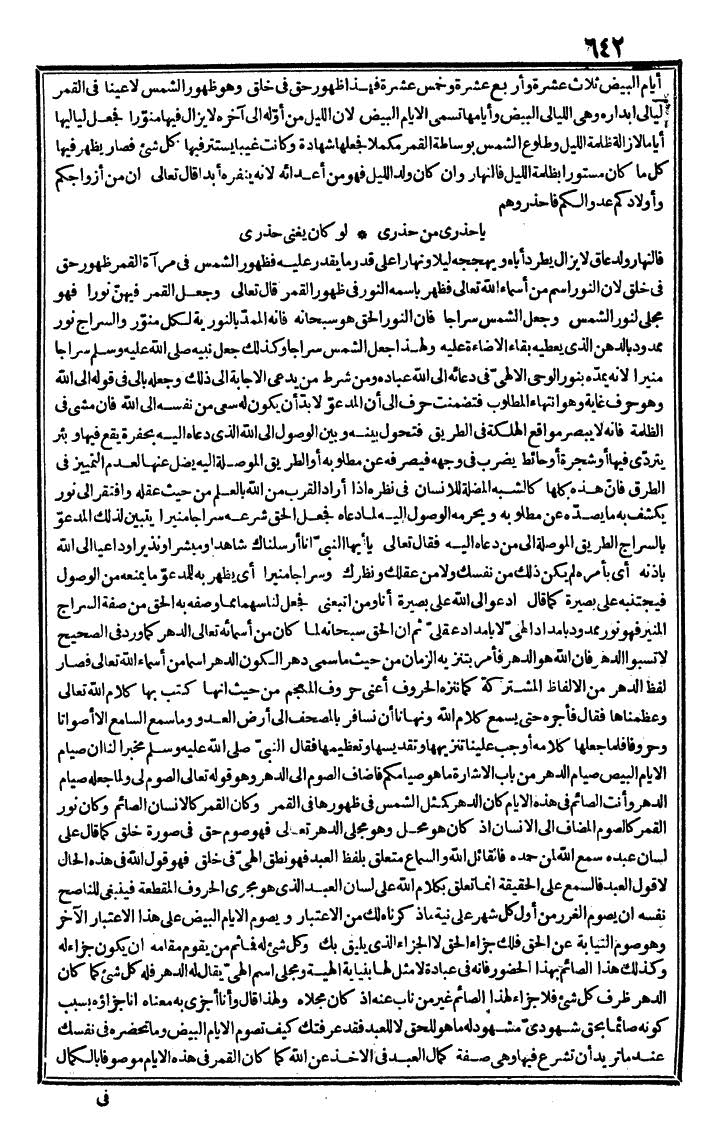 ٦٤٢
أيام البيض ثلاث عشرة وأربع عشرة وخمس عشرة فهذا ظهور حق فى خلق وهو ظهور الشمس لاعيننا فى القمر
ليالى ابداره وهى الليالى البيض وأيامها تسمى الايام البيض لان الليل من أوّله الى آخره لا يزال فيها منوّرا فجعل لياليها
أيامالازالة ظلمة الليل وطلوع الشمس بوساطة القمر مكملا فجعلها شهادة وكانت غيبا يستتر فيها كل شئ فصار يظهر فيها
كل ما كان مستورا بظلمة الليل فالنهار وان كان ولد الليل فهو من أعدائه لانه ينفره أبدا قال تعالى ان من أزواجكم
وأولادكم عدوا لكم فاحذروهم
ياحذرى من حذرى * لو كان يغنى حذرى
فالنهار ولد عاق لا يزال يطرد أباه ويهججه ليلا ونهارا على قدر ما يقدر عليه فظهور الشمس فى مرآة القمر ظهور حق
فى خلق لان النور اسم من أسماء الله تعالى فظهر باسمه النور فى ظهور القمر قال تعالى وجعل القمر فيهنّ نورا فهو
مجلى لنور الشمس وجعل الشمس سراجا فان النور الحق هو سبحانه فانه الممدّ بالنورية لكل منوّر والسراج نور
ممدود بالدهن الذى يعطيه بقاء الاضاءة عليه ولهذا جعل الشمس سراجا وكذلك جعل نبيه صلى الله عليه وسلم سراجا
منيرا لانه يمدّه بنور الوحى الالهىّ فى دعائه الى الله عباده ومن شرط من يدعى الاجابة الى ذلك وجعله بالى فى قوله الى الله
وهو حرف غاية وهو انتهاء المطلوب فتضمنت حرف الى أن المدعوّ لابدّ أن يكون له سعى من نفسه الى الله فان مشى فى
الظلمة فانه لا يبصر مواقع الهلكة فى الطريق فتحول بينه وبين الوصول الى الله الذى دعاه اليه بحفرة يقع فيها وبئر
يتردّى فيها أو شجرة أو حائط يضرب فى وجهه فيصرفه عن مطلوبه أو الطريق الموصلة اليه يضل عنها لعدم التمييز فى
الطرق فانّ هذه كلها كالشبه المضلة للانسان فى نظره اذا أراد القرب من الله بالعلم من حيث عقله وافتقر الى نور
يكشف به ما يصدّه عن مطلوبه ويحرمه الوصول اليه لما دعاه فجعل الحق شرعه سراجا منيرا يتبين لذلك المدعوّ
بالسراج الطريق الموصلة الى من دعاه اليه فقال تعالى ياأيها النبىّ انا أرسلناك شاهدا ومبشرا ونذيرا وداعيا الى الله
باذنه أى بأمره لم يكن ذلك من نفسك ولا من عقلك ونظرك وسراجا منيرا أى يظهر به للمدعوّ ما يمنعه من الوصول
فيجتنبه على بصيرة كما قال ادعو الى الله على بصيرة أنا ومن اتبعنى فجعل لنا سهما مما وصفه به الحق من صفة السراج
المنير فهو نور ممدود بامداد الهىّ لا بامداد عقلىّ ثم ان الحق سبحانه لما كان من أسمائه تعالى الدهر كما ورد فى الصحيح
لا تسبوا الدهر فان الله هو الدهر فأمر بتنزيه الزمان من حيث ما سمى دهرا لكون الدهر اسما من أسماء الله تعالى فصار
لفظ الدهر من الالفاظ المشتركة كما ننزه الحروف أعنى حروف المعجم من حيث انها كتب بها كلام الله تعالى
وعظمناها فقال فأجره حتى يسمع كلام الله ونهانا أن نسافر بالمصحف الى أرض العدو وما سمع السامع الا أصواتا
وحروفا فلما جعلها كلامه أوجب علينا تنزيهها وتقديسها وتعظيمها فقال النبىّ صلى الله عليه وسلم مخبرا لنا ان صيام
الايام البيض صيام الدهر من باب الاشارة ما هو صيامكم فاضاف الصوم الى الدهر وهو قوله تعالى الصوم لى ولما جعله صيام
الدهر وأنت الصائم فى هذه الايام كان الدهر كمثل الشمس فى ظهورها فى القمر وكان القمر كالانسان الصائم وكان نور
القمر كالصوم المضاف الى الانسان اذ كان هو محل وهو مجلى الدهر تعالى فهو صوم حق فى صورة خلق كما قال على
لسان عبده سمع الله لمن حمده فالقائل الله والسماع متعلق بلفظ العبد فهو نطق الهىّ فى خلق فهو قول الله فى هذه الحال
لا قول العبد فالسمع على الحقيقة انما تعلق بكلام الله على لسان العبد الذى هو مجرى الحروف المقطعة فينبغى للناصح
نفسه ان يصوم الغرر من أول كل شهر على نية ما ذكرناه لك من الاعتبار و يصوم الايام البيض على هذا الاعتبار الآخر
وهو صوم النيابة عن الحق فلك جزاء الحق لا الجزاء الذى يليق بك وكل شئ له فما ثم من يقوم مقامه ان يكون جزاء له
وكذلك هذا الصائم بهذا الحضور فانه فى عبادة لا مثل لها بنيابة الهية ومجلى اسم الهىّ يقال له الدهر فله كل شئ كما كان
الدهر ظرف كل شئ فلا جزاء لهذا الصائم غير من ناب عنه اذ كان مجلاه ولهذا قال وأنا أجزى به معناه انا جزاؤه بسبب
كونه صائما بحق شهودىّ مشهود له ما هو للحق لا للعبد فقد عرفتك كيف تصوم الايام البيض وما تحضره فى نفسك
عند ما تريد أن تشرع فيها وهى صفة كمال العبد فى الاخذ عن الله كما كان القمر فى هذه الايام موصوفا بالكمال
فى